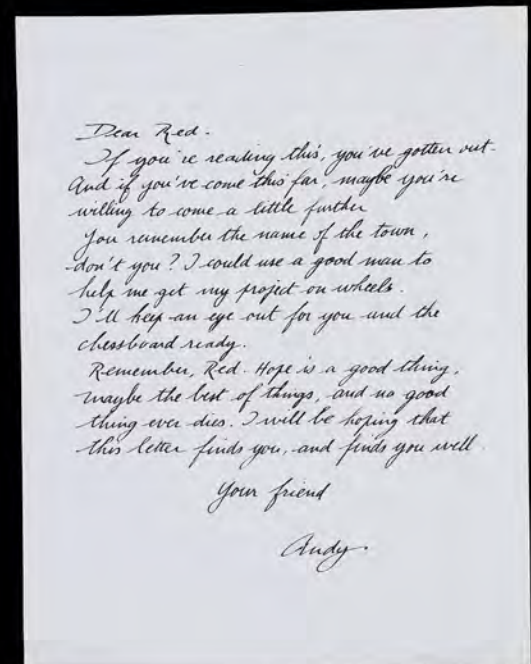 Dear Red.
If you're reading this, you've gotten out.
And if you've come this far, maybe you're
willing to come a little further
You remember the name of the town,
don't you? I could use a good man to
help me get my project on wheels.
I'll keep an eye out for you and the
chessboard ready.
Remember, Red. Hope is a good thing,
maybe the best of things, and no good
thing ever dies. I will be hoping that
this letter finds you, and finds you well.
Your friend
Andy.